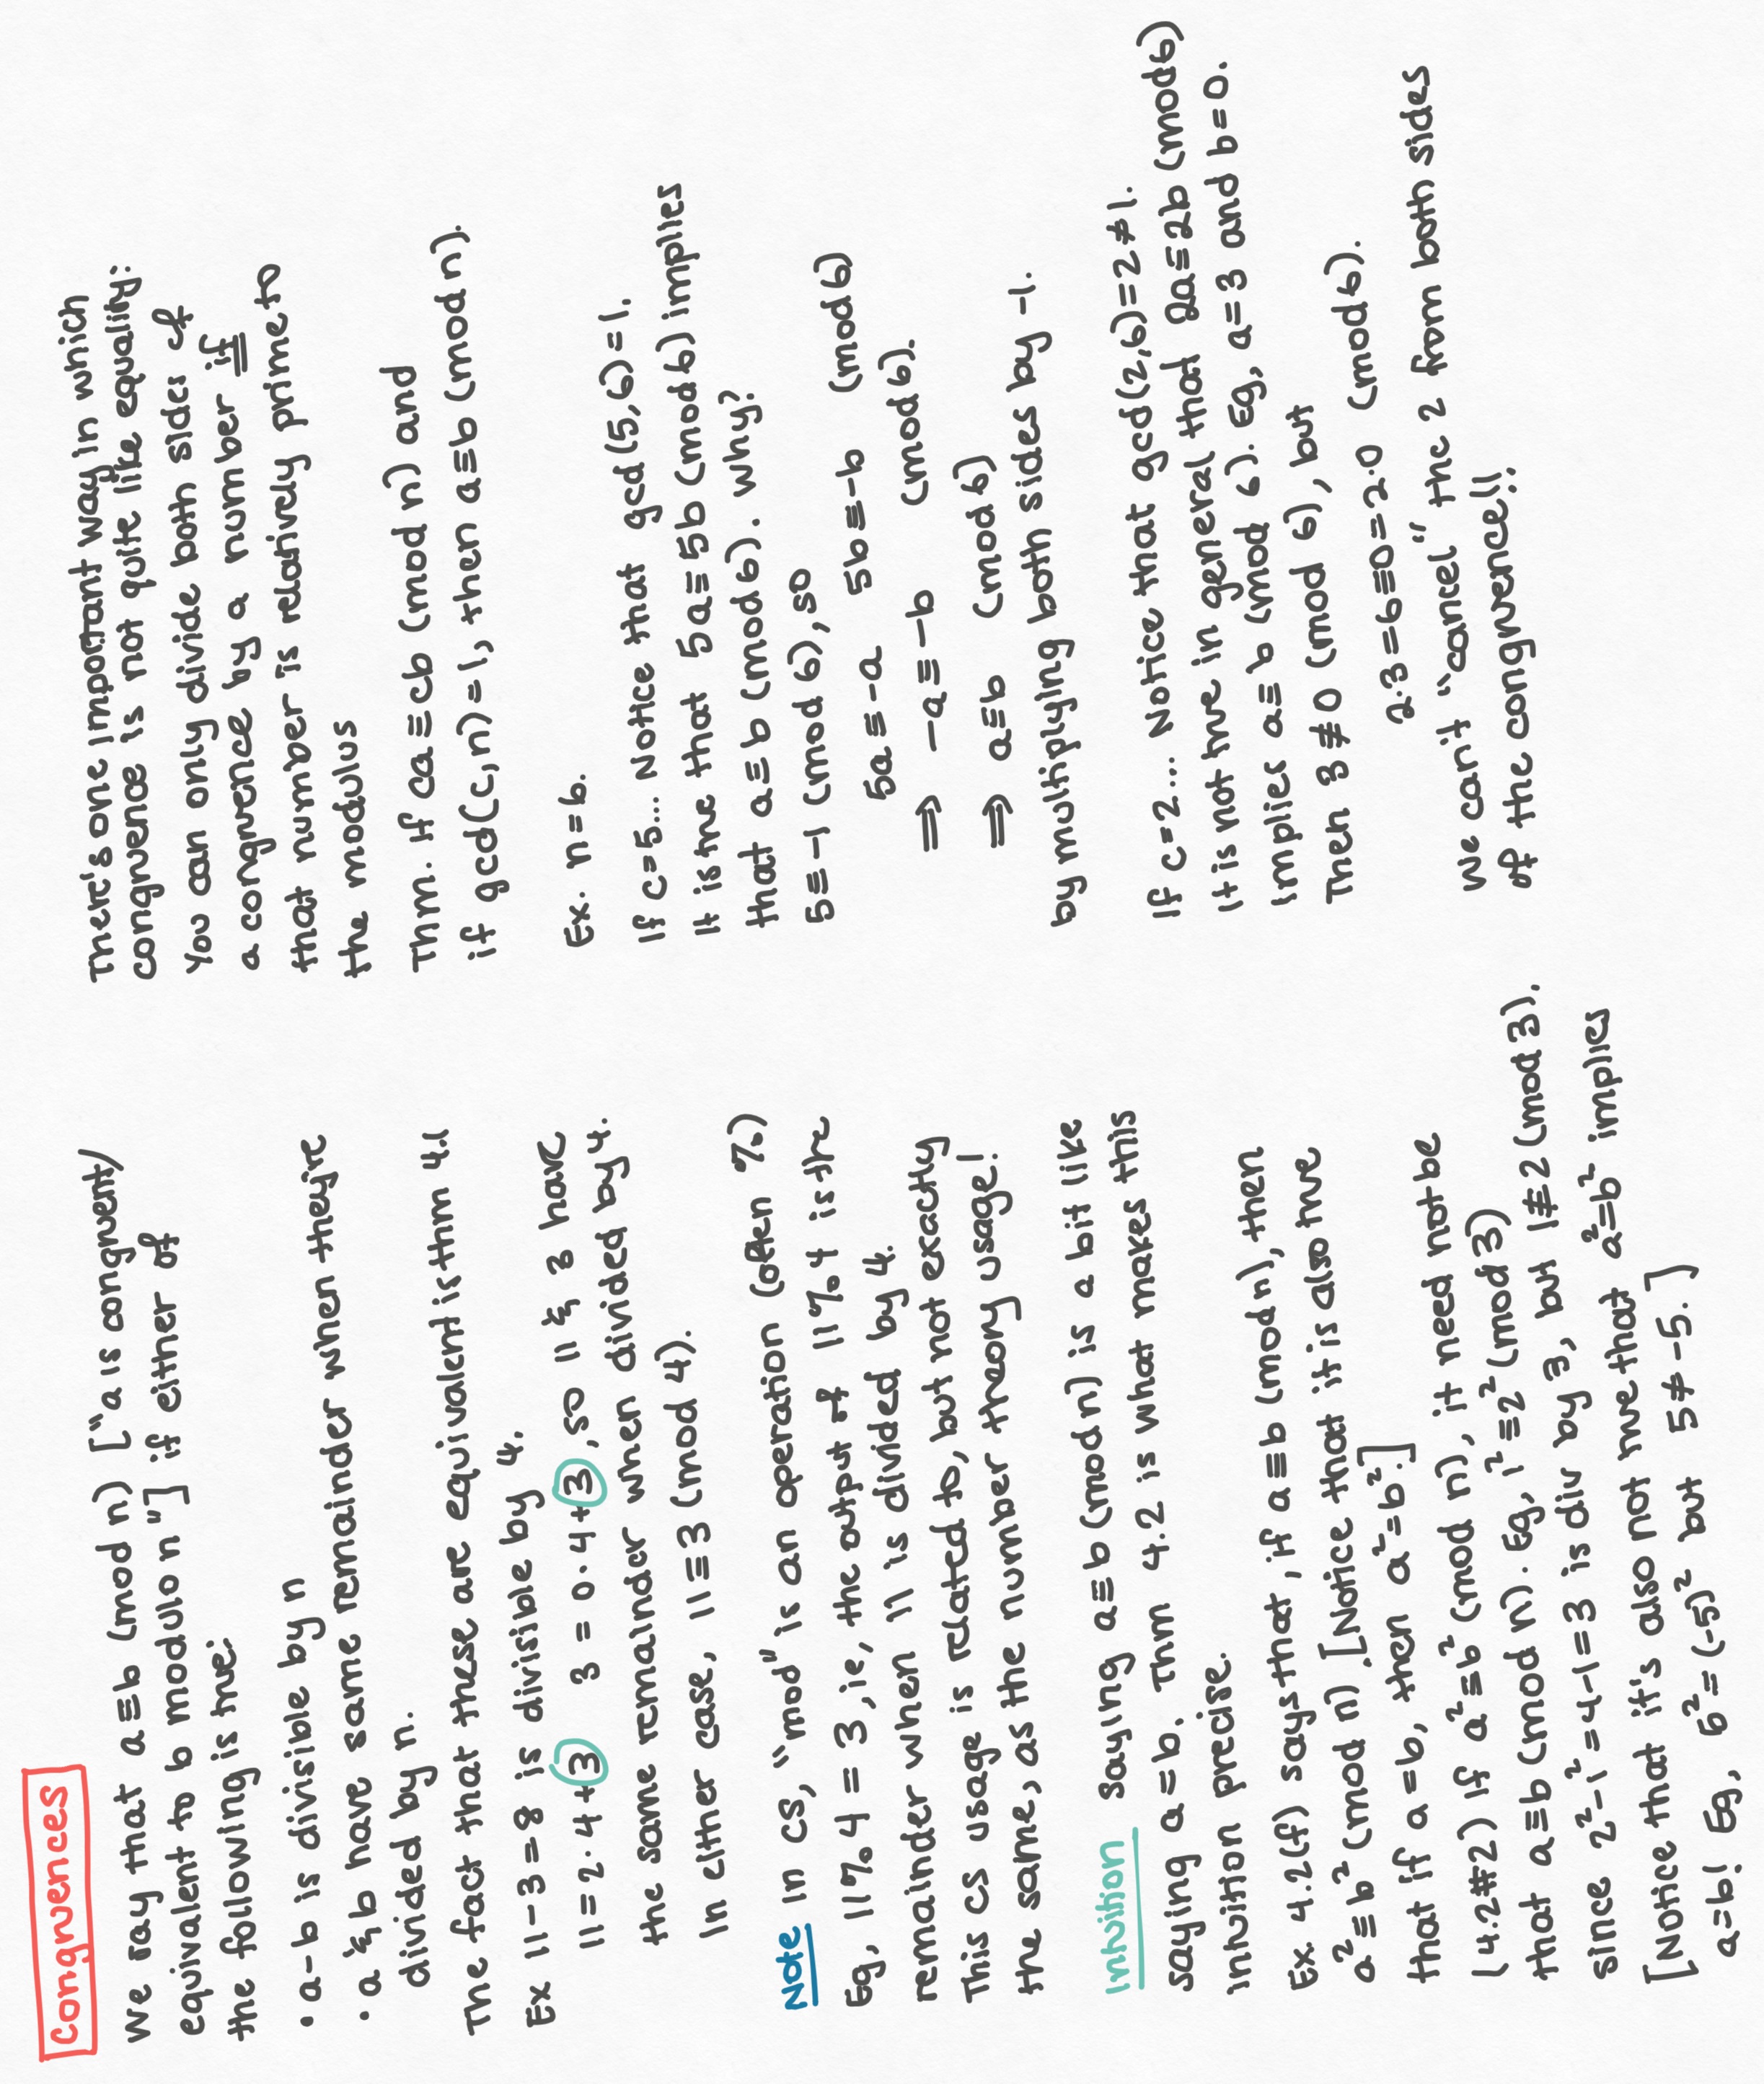 Congruences
We say that a≡b (mod n) ["a is congruent/
equivalent to b modulo n"] if either of
the following is true:
• a-b is divisible by n
• a & b have same remainder when they're
divided by n.
The fact that these are equivalent is thm 4.1
Ex 11-3=8 is divisible by 4.
11=2·4+3 3=0·4+3, so 11 & 3 have
the same remainder when divided by 4.
In either case, 11≡3 (mod 4).
Note In CS, "mod" is an operation (often %)
Eg, 11%4 = 3, ie, the output of 11%4 is the
remainder when 11 is divided by 4.
This CS usage is related to, but not exactly
the same, as the number theory usage!
Intuition Saying a≡b (mod n) is a bit like
saying a=b. Thm 4.2 is what makes this
intuition precise.
Ex. 4.2(f) says that, if a≡b (mod n), then
a²≡b² (mod n). [Notice that it is also true
that if a=b, then a²=b².]
(4.2#2) If a²≡b² (mod n), it need not be
that a≡b (mod n). Eg, 1²≡2² (mod 3)
since 2²-1²=4-1=3 is div by 3, but 1≢2 (mod 3).
[Notice that it's also not true that a²=b² implies
a=b! Eg, 5²=(-5)² but 5≠-5.]
There's one important way in which
congruence is not quite like equality:
You can only divide both sides of
a congruence by a number if
that number is relatively prime to
the modulus
Thm. If ca≡cb (mod n) and
if gcd(c,n)=1, then a≡b (mod n).
Ex. n=6.
If c=5... Notice that gcd(5,6)=1.
It is true that 5a≡5b (mod 6) implies
that a≡b (mod 6). Why?
5≡-1 (mod 6), so
5a≡-a 5b≡-b (mod 6)
⟹ -a≡-b (mod 6).
⟹ a≡b (mod 6)
by multiplying both sides by -1.
If c=2... Notice that gcd(2,6)=2≠1.
It is not true in general that 2a≡2b (mod 6)
implies a≡b (mod 6). Eg, a=3 and b=0.
Then 3≢0 (mod 6), but
2·3=6≡0=2·0 (mod 6).
We can't "cancel" the 2 from both sides
of the congruence!!